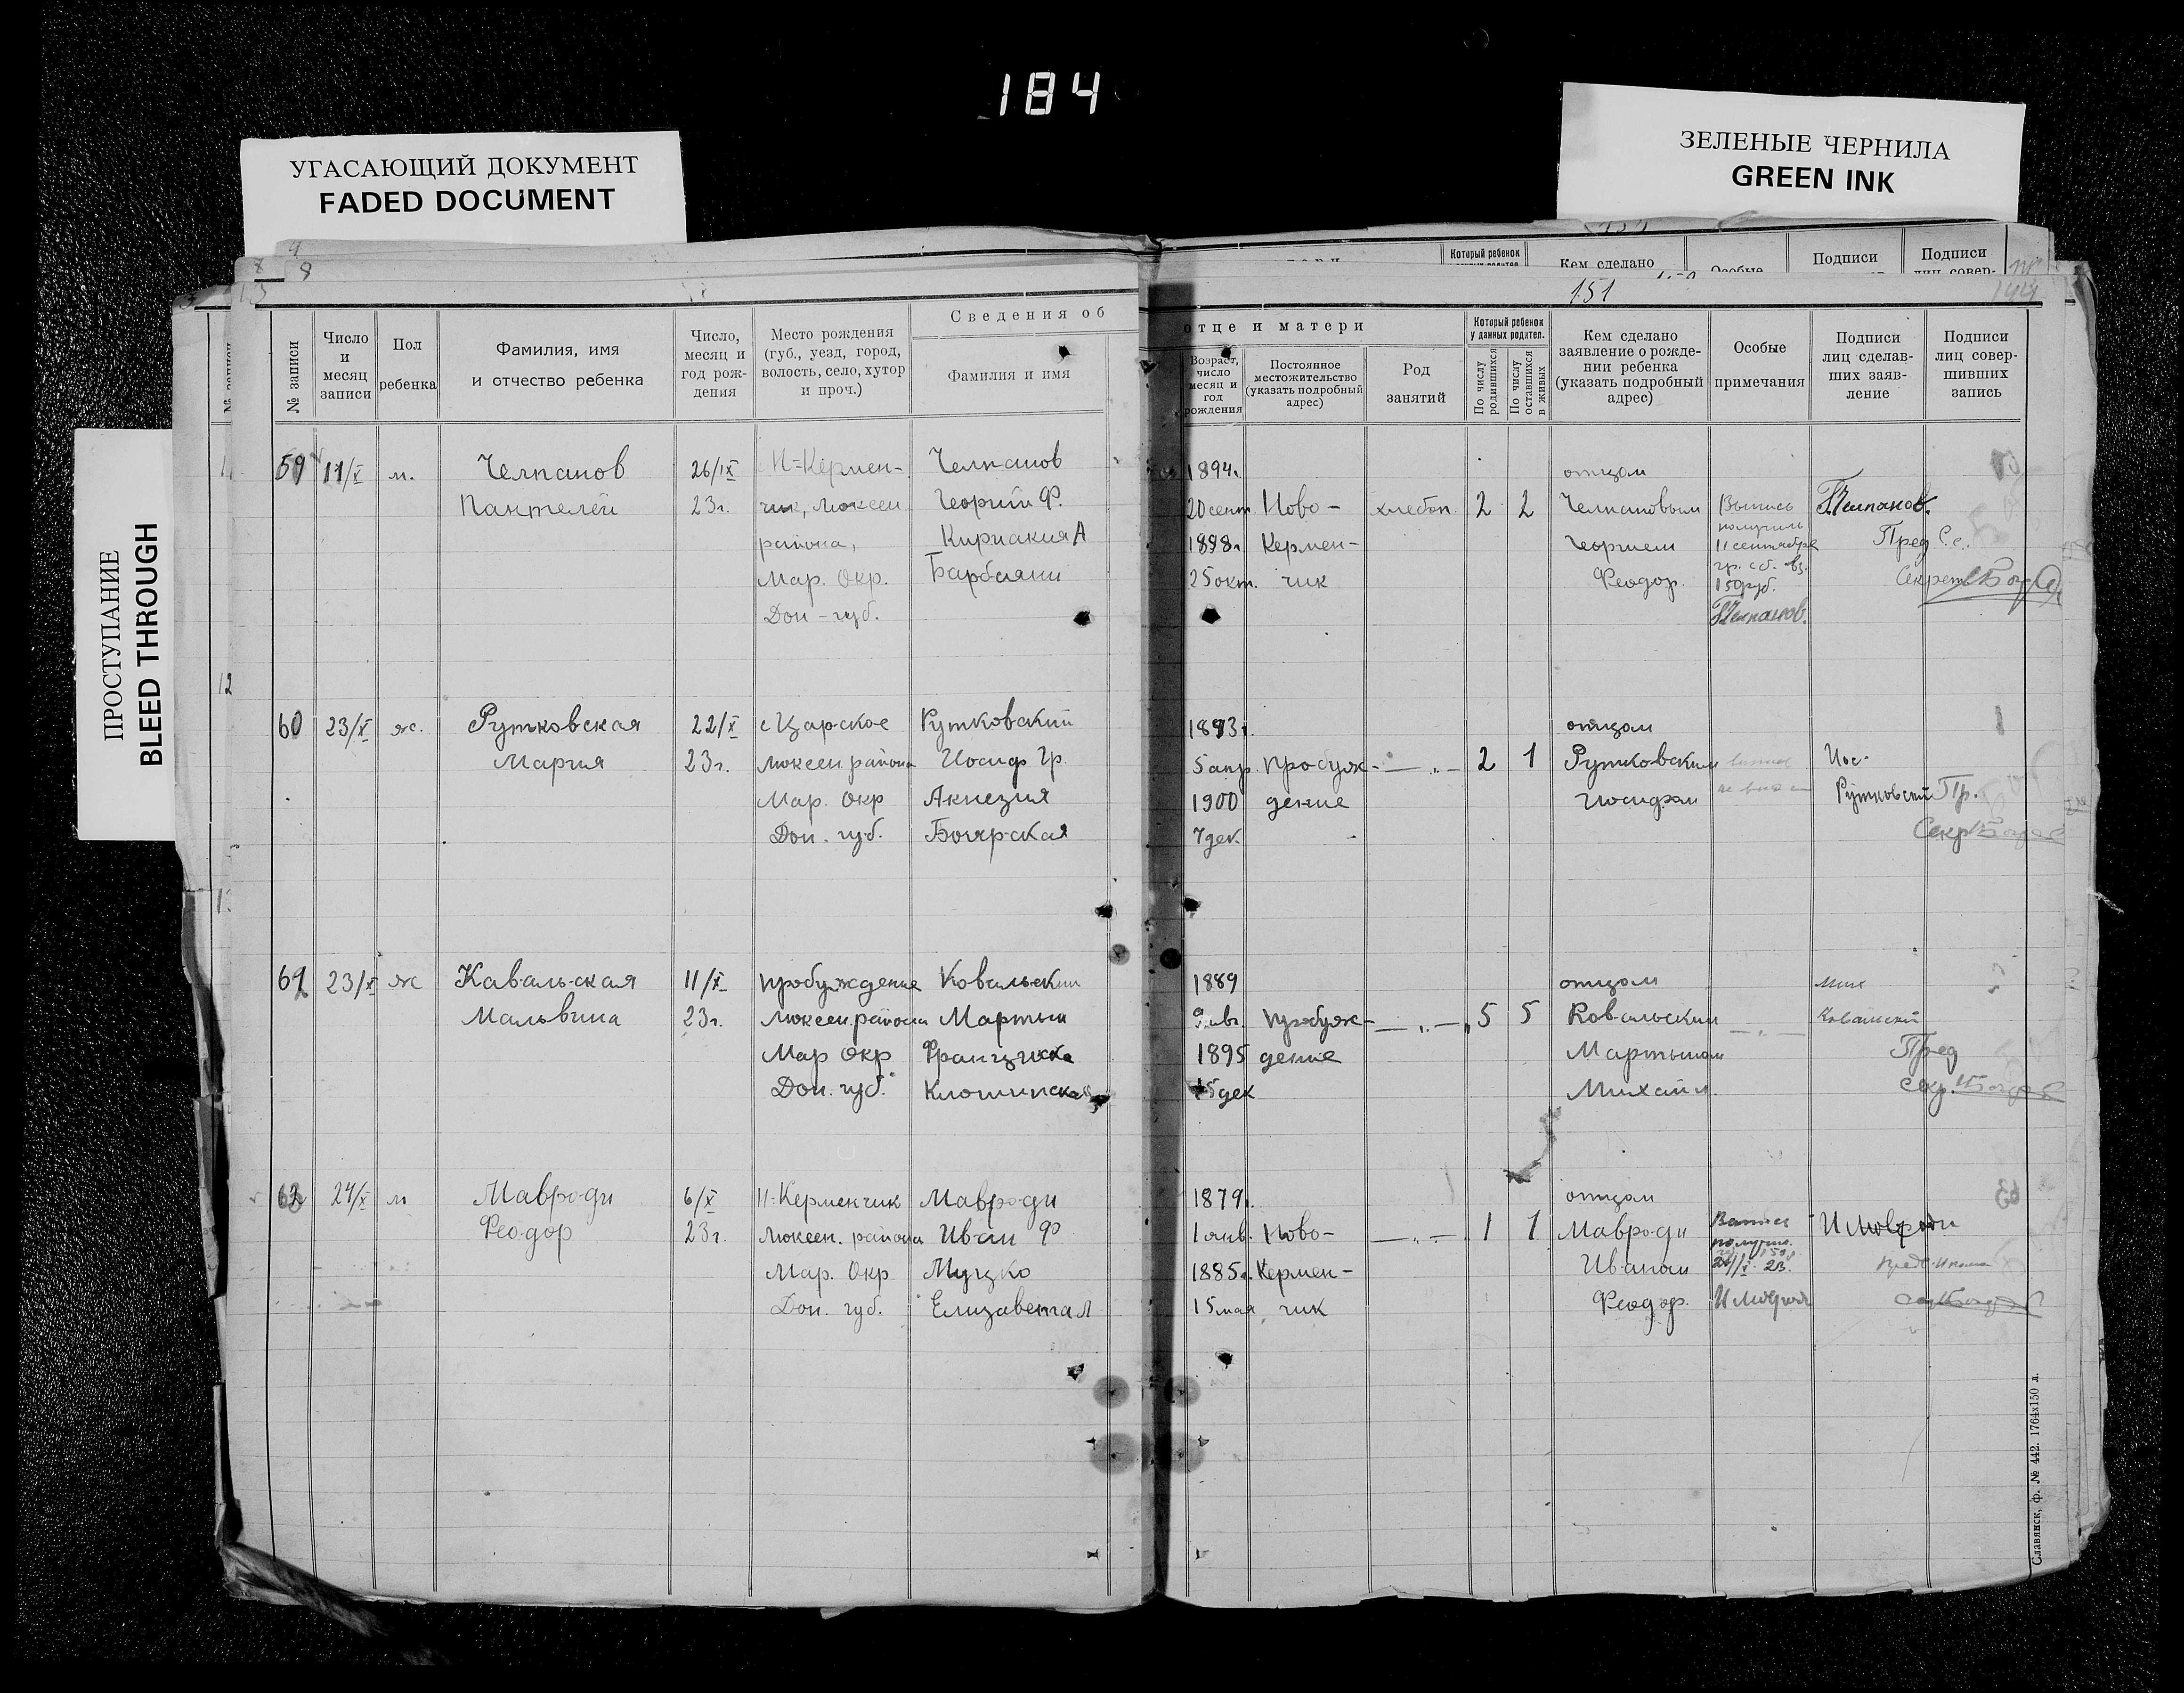 184
УГАСАЮЩИЙ ДОКУМЕНТ
FADED DOCUMENT
ЗЕЛЕНЫЕ ЧЕРНИЛА
GREEN INK
ПРОСТУПАНИЕ
BLEED THROUGH
Который ребенок
Кем сделано
Особые
Подписи
Подписи
лиц совер-
151
№ записи
Число и месяц записи
Пол ребенка
Фамилия, имя и отчество ребенка
Число, месяц и год рож- дения
Место рождения (губ., уезд, город, волость, село, хутор и проч.)
Сведения об отце и матери
Фамилия и имя
Возраст, число месяц и год рождения
Постоянное местожительство (указать подробный адрес)
Род занятий
Который ребенок у данных родител.
По числу родившихся
По числу оставшихся в живых
Кем сделано заявление о рожде- нии ребенка (указать подробный адрес)
Особые примечания
Подписи лиц сделав- ших заяв- ление
Подписи лиц совер- шивших запись
59 11/X м. Челпанов 26/IX Н=Кермен- Челпанов 1894г. отцом
Пантелей 23г. чик, Люксем Георгий Ф. 20 сент. Ново- хлебоп. 2 2 Челпановым Выпись Г.Челпанов.
района, Кириакия А 1898г. Кермен- Георгием получил 11 сентября Пред. С.с.
Мар. Окр. Барбаяни 25 окт. чик Феодор. гр. сб. вз. 150руб. Секрет
Дон-губ. Г.Челпанов.
60 23/X ж. Рутковская 22/X с Царское Рутковский отцом
Мария 23г. Люксем района Иосиф Гр. 5 апр. Пробуж- —„— 2 1 Рутковским Иос.
Мар. Окр Акнезия 1900 дение Иосифом Рутковский Пр.
Дон. губ. Боярская 7 дек. Секр
61 23/X ж Кавальская 11/X Пробуждение Ковальский 1889 отцом
Мальвина 23г. Люксем. района Мартын Пробуж- —„— 5 5 Ковальским —„— Ковальский
Мар Окр Францишка 1895 дение Мартыном Пред
Дон. губ. 15 дек Михайл. Секр.
62 24/X м Мавроди 6/X Н-Керменчик Мавроди 1879г. отцом
Феодор 23г. Люксем. района Иван Ф 1 янв. Ново- —„— 1 1 Мавроди Выпись получил И Мавроди
Мар. Окр Муцко 1885г. Кермен- Иваном 24/X 23.
Дон. губ. Елизавета Л 15 мая чик Феодор.
Славянск, ф. № 442. 1764х150 л.